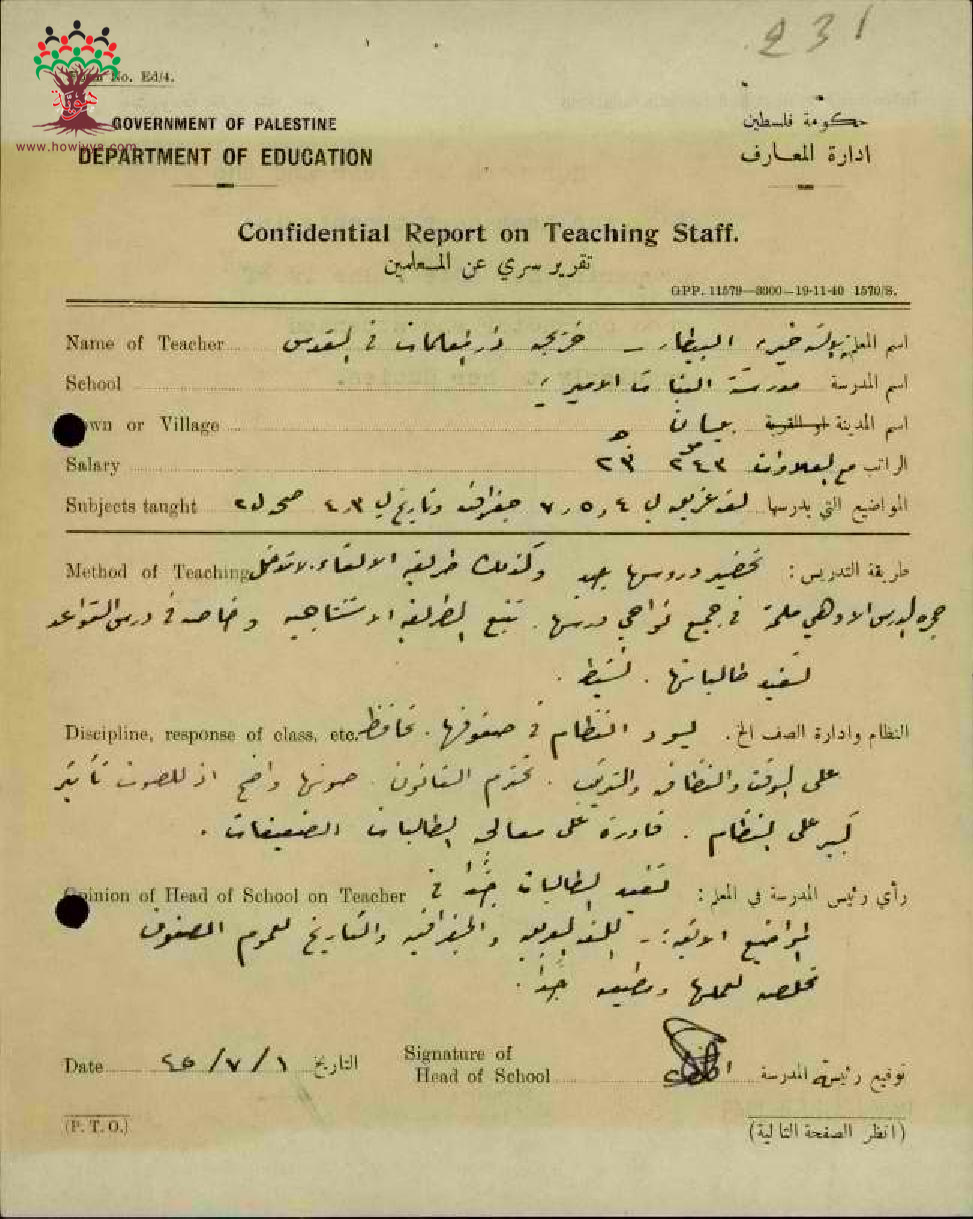 231
Form No. Ed/4.
www.howiyya.com
GOVERNMENT OF PALESTINE
DEPARTMENT OF EDUCATION
حكومة فلسطين
ادارة المعارف
Confidential Report on Teaching Staff.
تقرير سري عن المعلمين
GPP. 11579—3000—19-11-40 1570/S.
Name of Teacher البيطار - خريجة دار المعلمات في القدس اسم المعلم
School مدرسة البنات الاميرية اسم المدرسة
Town or Village بيسان اسم المدينة او القرية
Salary ٢٤٣ ٢٣ الراتب مع العلاوات
Subjects taught لغة عربية ل ٤ و ٥ و ٧ جغرافية وتاريخ ل ٣ و ٤ صحة ل ٢ المواضيع التي يدرسها
Method of Teaching طريقة التدريس : تحضير دروسها جيد وكذلك طريقة الالقاء. لا تدخل
الدرس الا وهي ملمة في جميع نواحي درسها. تتبع الطريقة الاستنتاجية وخاصة في درس القواعد
تفيد طالباتها. نشيطة.
Discipline, response of class, etc. النظام وادارة الصف الخ. يسود النظام في صفوفها. تحافظ
على الوقت والنظافة والترتيب. تحترم القانون. صوتها واضح اذ للصوت تأثير
كبير على النظام. قادرة على معالجة الطالبات الضعيفات.
Opinion of Head of School on Teacher رأي رئيس المدرسة في المعلم : تفيد الطالبات جداً في
المواضيع الاتية :- اللغة العربية والجغرافية والتاريخ لعموم الصفوف
مخلصة لعملها ومطيعة جداً.
Date ١/٧/٤٥ التاريخ
Signature of
Head of School توقيع رئيسة المدرسة
(P. T. O.)
(انظر الصفحة التالية)